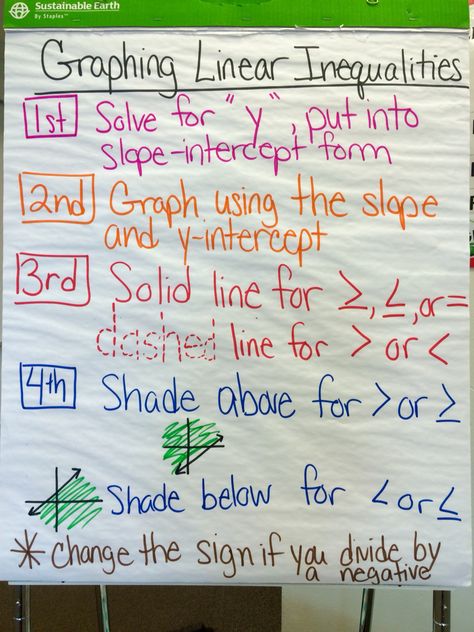 Sustainable Earth
By Staples™
Graphing Linear Inequalities
1st Solve for "y", put into
slope-intercept form
2nd Graph using the slope
and y-intercept
3rd Solid line for ≥, ≤, or =
dashed line for > or <
4th Shade above for > or ≥
Shade below for < or ≤
* change the sign if you divide by
a negative